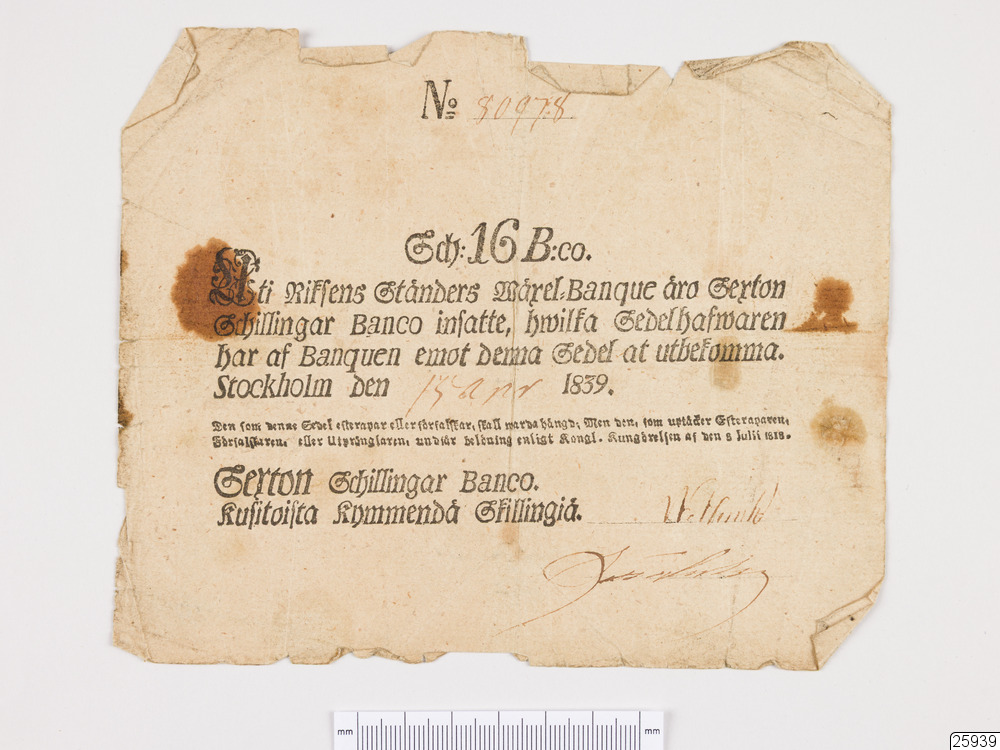 No 80978.
Sch: 16 B:co.
Uti Riksens Ständers Wäxel-Banque äro Sexton
Schillingar Banco insatte, hwilka Sedelhafwaren
har af Banquen emot denna Sedel at utbekomma.
Stockholm den 15 Apr 1839.
Den som denne Sedel efterapar eller förfalskar, skall warda hängd; Men den, som uptäcker Efteraparen,
Förfalskaren, eller Utprånglaren, undfår belöning enligt Kongl. Kungörelsen af den 8 Julii 1818.
Sexton Schillingar Banco.
Kusitoista Kymmendä Skillingiä.
mm mm
25939